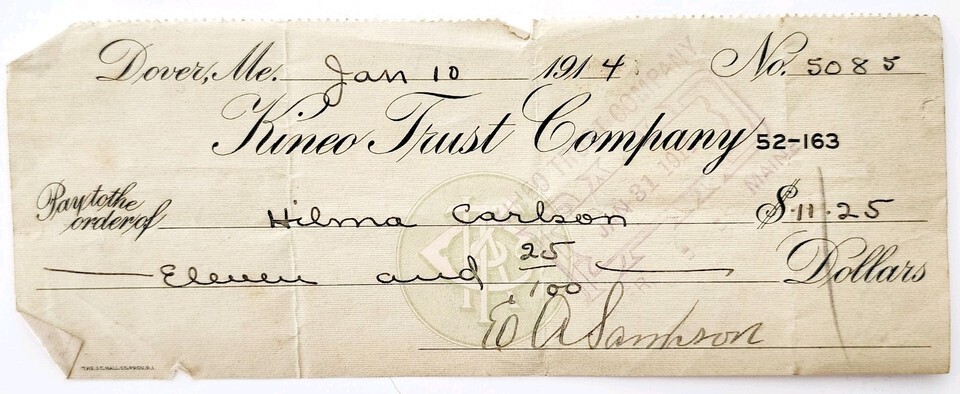 Dover, Me. Jan 10 1914 No. 5085
Kineo Trust Company 52-163
Pay to the order of Hilma Carlson $ 11.25
Eleven and 25/100 Dollars
E A Sampson
THE J.C. HALL CO. PROV. R.I.
KINEO TRUST COMPANY
PAID
JAN 31 191
MAINE